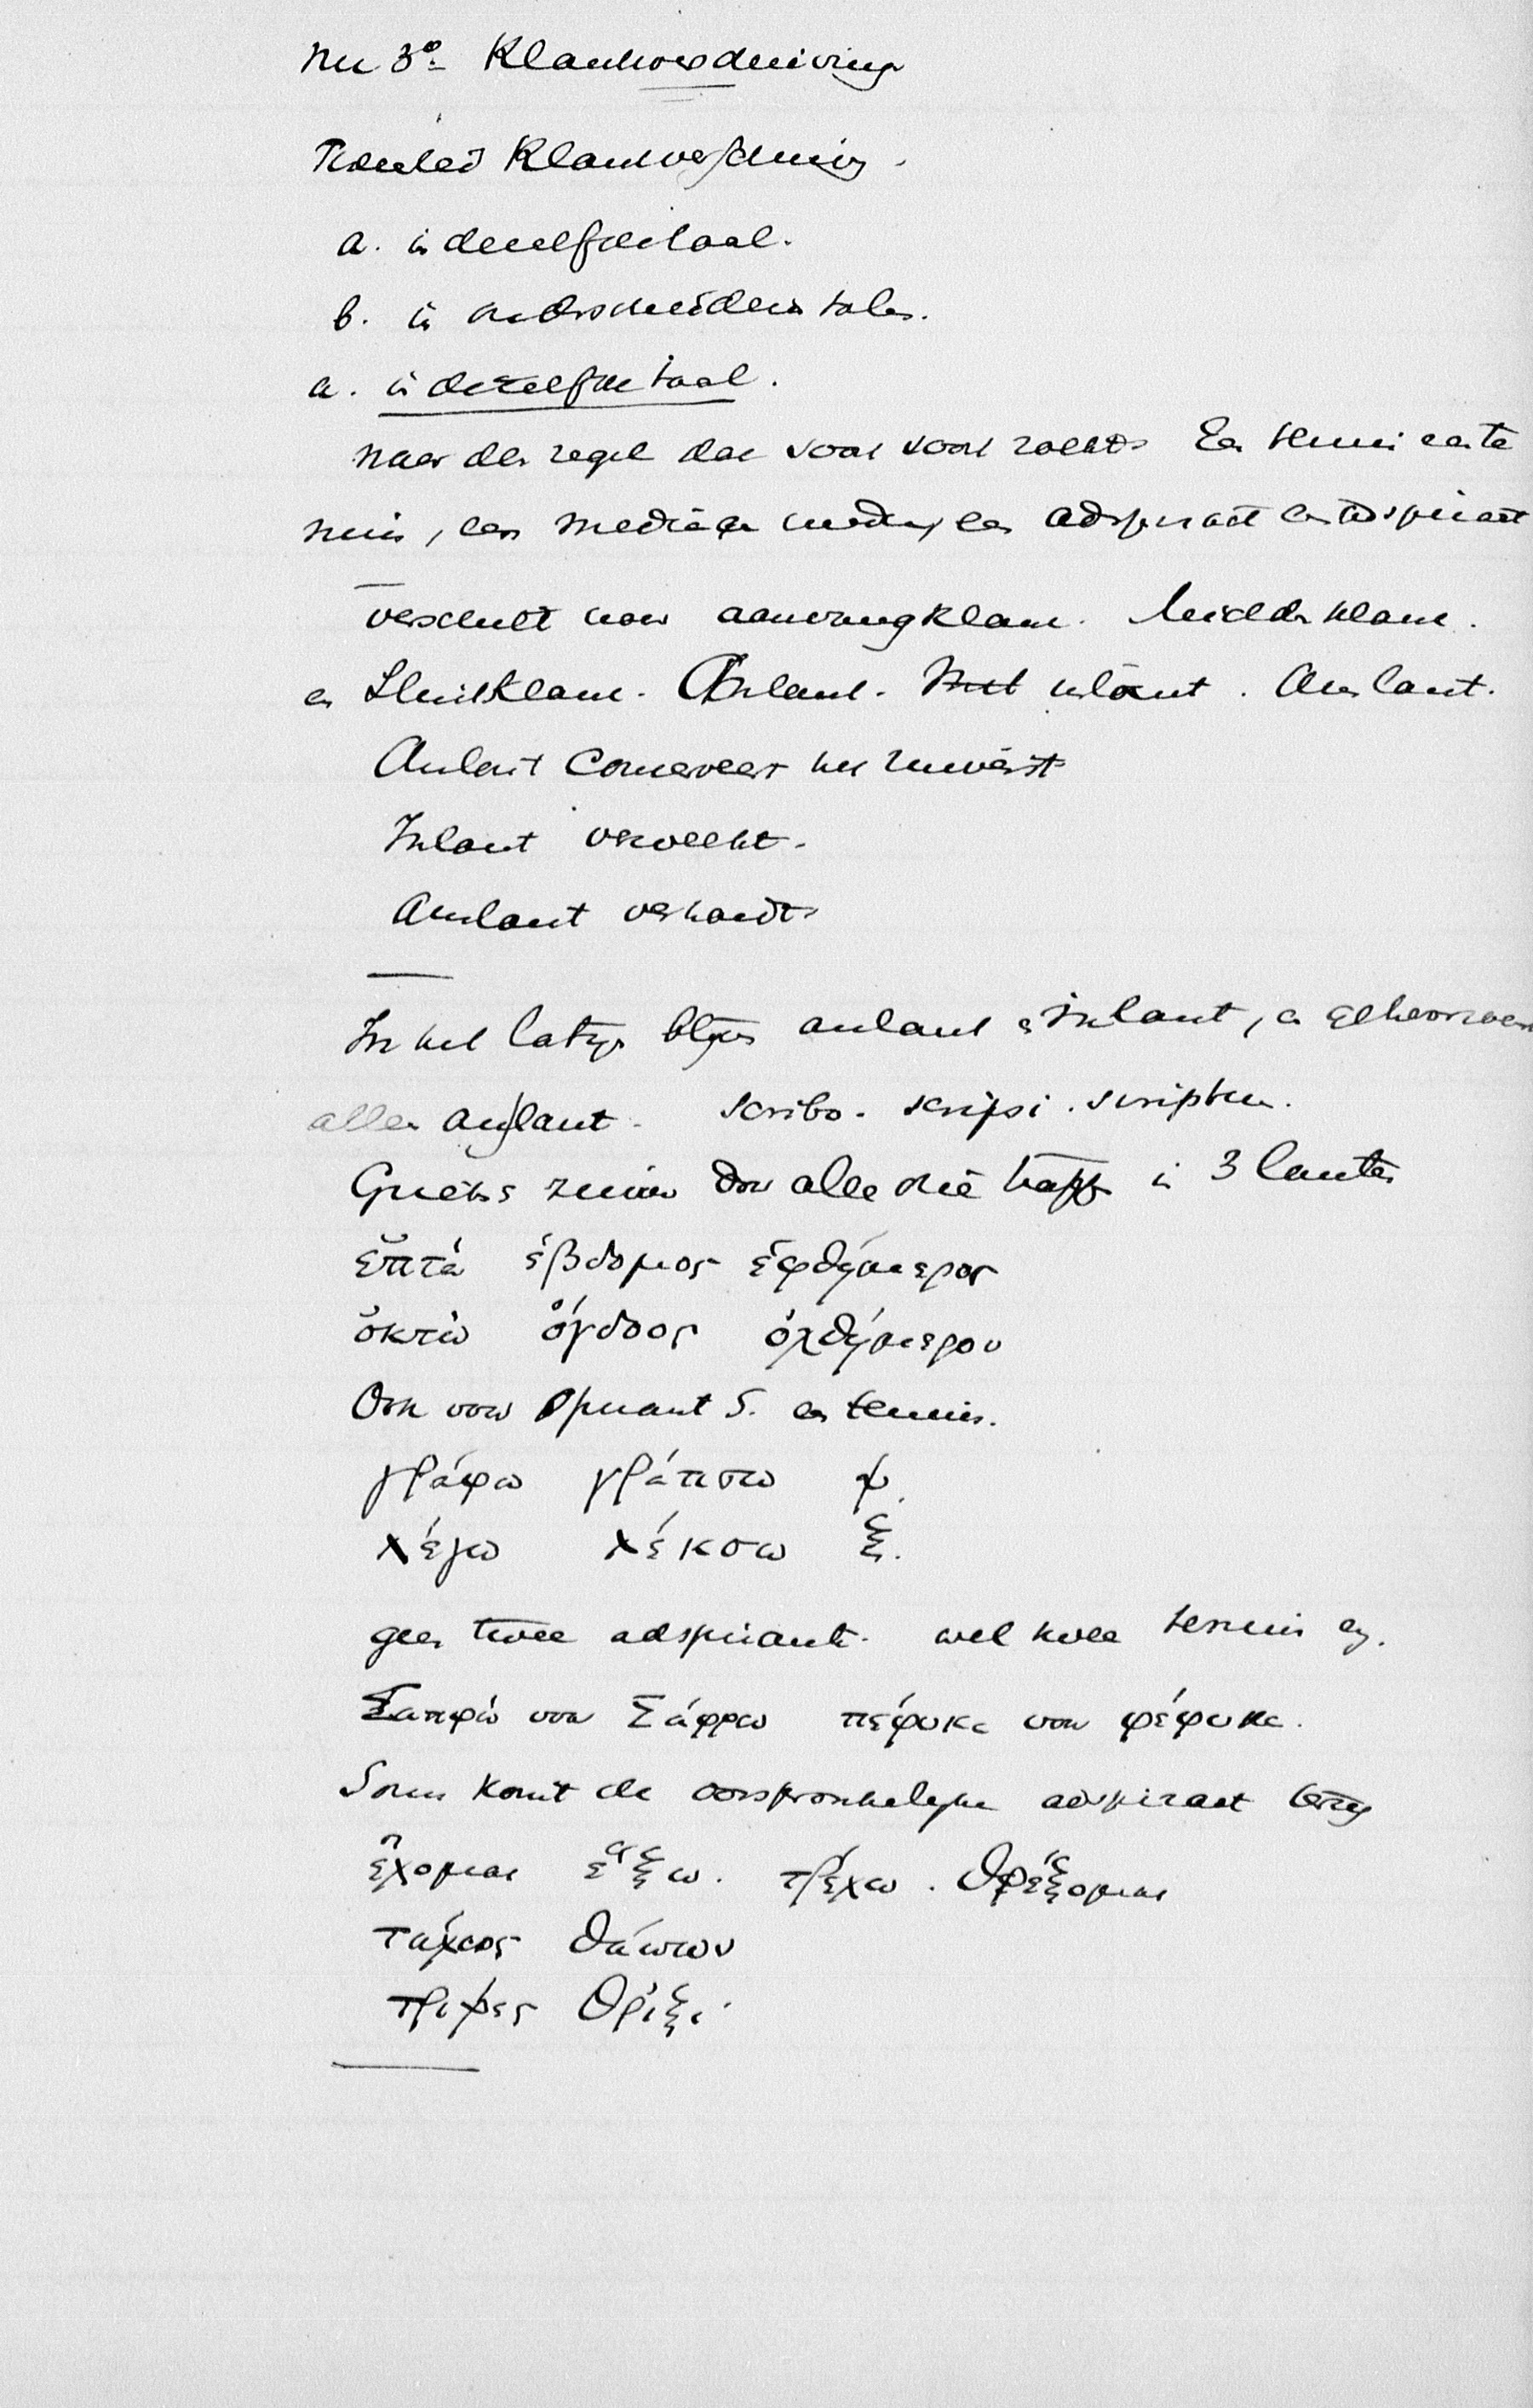 Nu 3° Klankverschuiving
Tweeërlei Klankverschuiving.
a. in dezelfde taal.
b. in onderscheidene talen.
a. in dezelfde taal.
naar den regel dat soort soort zoekt. Een tenuis een te
nuis, een media een media, een adspiraat een adspiraat
verschilt voor aanvangklank. Middenklank.
en Sluitklank. Anlaut. Inlaut. Auslaut.
Anlaut conserveert het zuiverst
Inlaut verweekt.
Auslaut verhardt
In het Latijn blijven anlaut en Inlaut, en gehoorzaam
alleen auslaut. scribo. scripsi. scriptum.
Grieks zuiver door alle drie trappen in 3 lauten
ἑπτά ἕβδομος ἑφθήμερος
ὀκτώ ὄγδοος ὀχθήμερον
Ook voor spirant S. een tenuis.
γράφω γράπσω ψ.
λέγω λέκσω ξ.
geen twee adspiranten. wel twee tenuis en.
Σαπφώ voor Σάφφω πέφυκε voor φέφυκε.
Soms komt de oorspronkelijke adspiraat terug
ἔχομαι ἕξω. τρέχω. θρέξομαι
τάχεος θάττων
τρίχες θριξί.